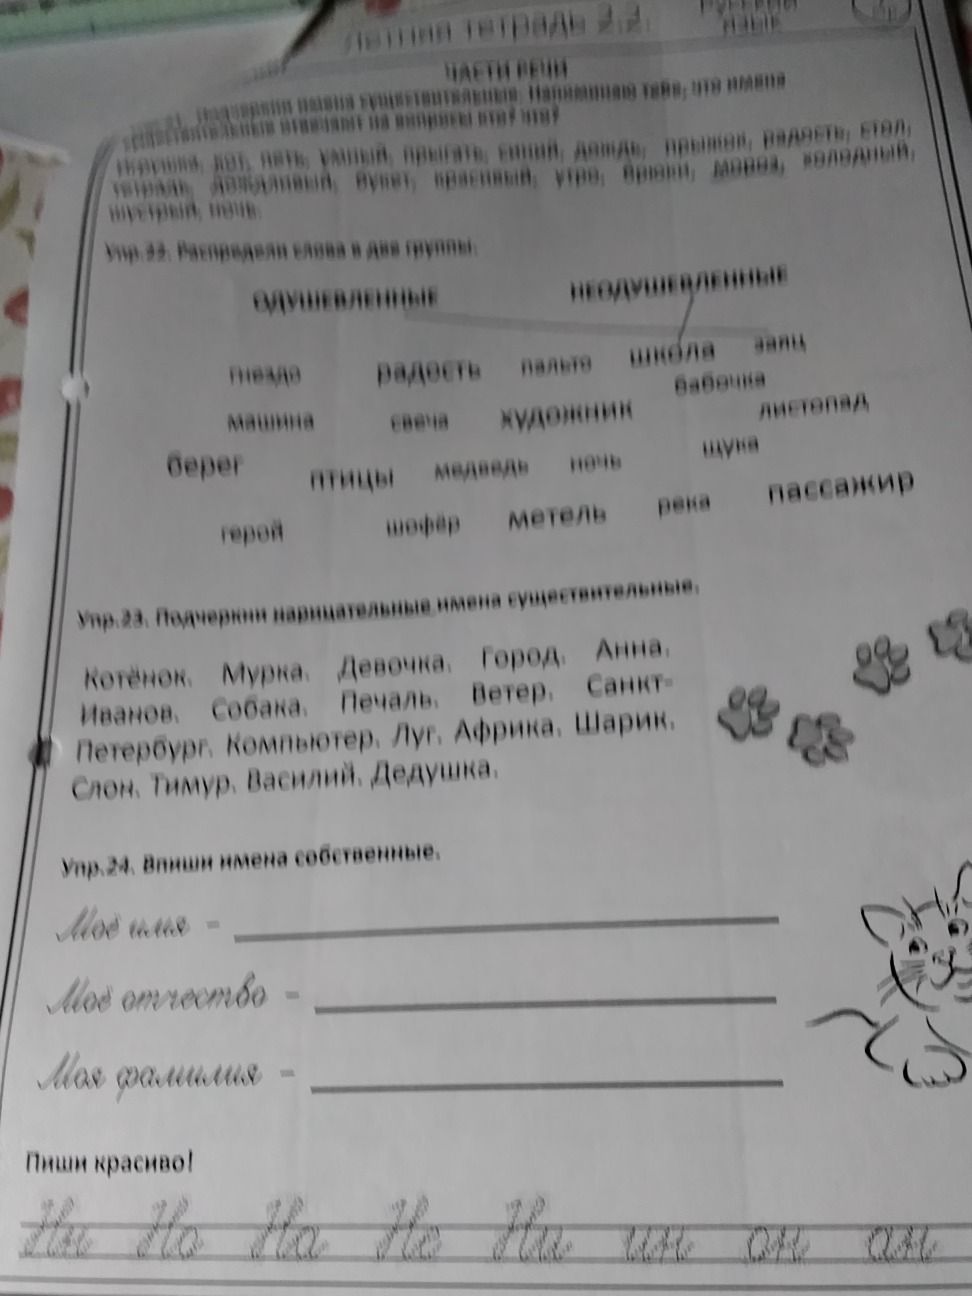 Летняя тетрадь 2.2.
Русский
язык
ЧАСТИ РЕЧИ
Подчеркни имена существительные. Напоминаю тебе, что имена
существительные отвечают на вопросы кто? что?
Игрушка, кот, петь, умный, прыгать, синий, дождь, прыжок, радость, стол,
тетрадь, дождливый, букет, красивый, утро, брюки, мороз, холодный,
шустрый, ночь.
Упр.22. Распредели слова в две группы.
ОДУШЕВЛЕННЫЕ НЕОДУШЕВЛЕННЫЕ
гнездо радость пальто школа заяц
бабочка
машина свеча художник листопад
берег птицы медведь ночь щука
герой шофёр метель река пассажир
Упр.23. Подчеркни нарицательные имена существительные.
Котёнок, Мурка, Девочка, Город, Анна,
Иванов, Собака, Печаль, Ветер, Санкт-
Петербург, Компьютер, Луг, Африка, Шарик,
Слон, Тимур, Василий, Дедушка.
Упр.24. Впиши имена собственные.
Моё имя –
Моё отчество –
Моя фамилия –
Пиши красиво!